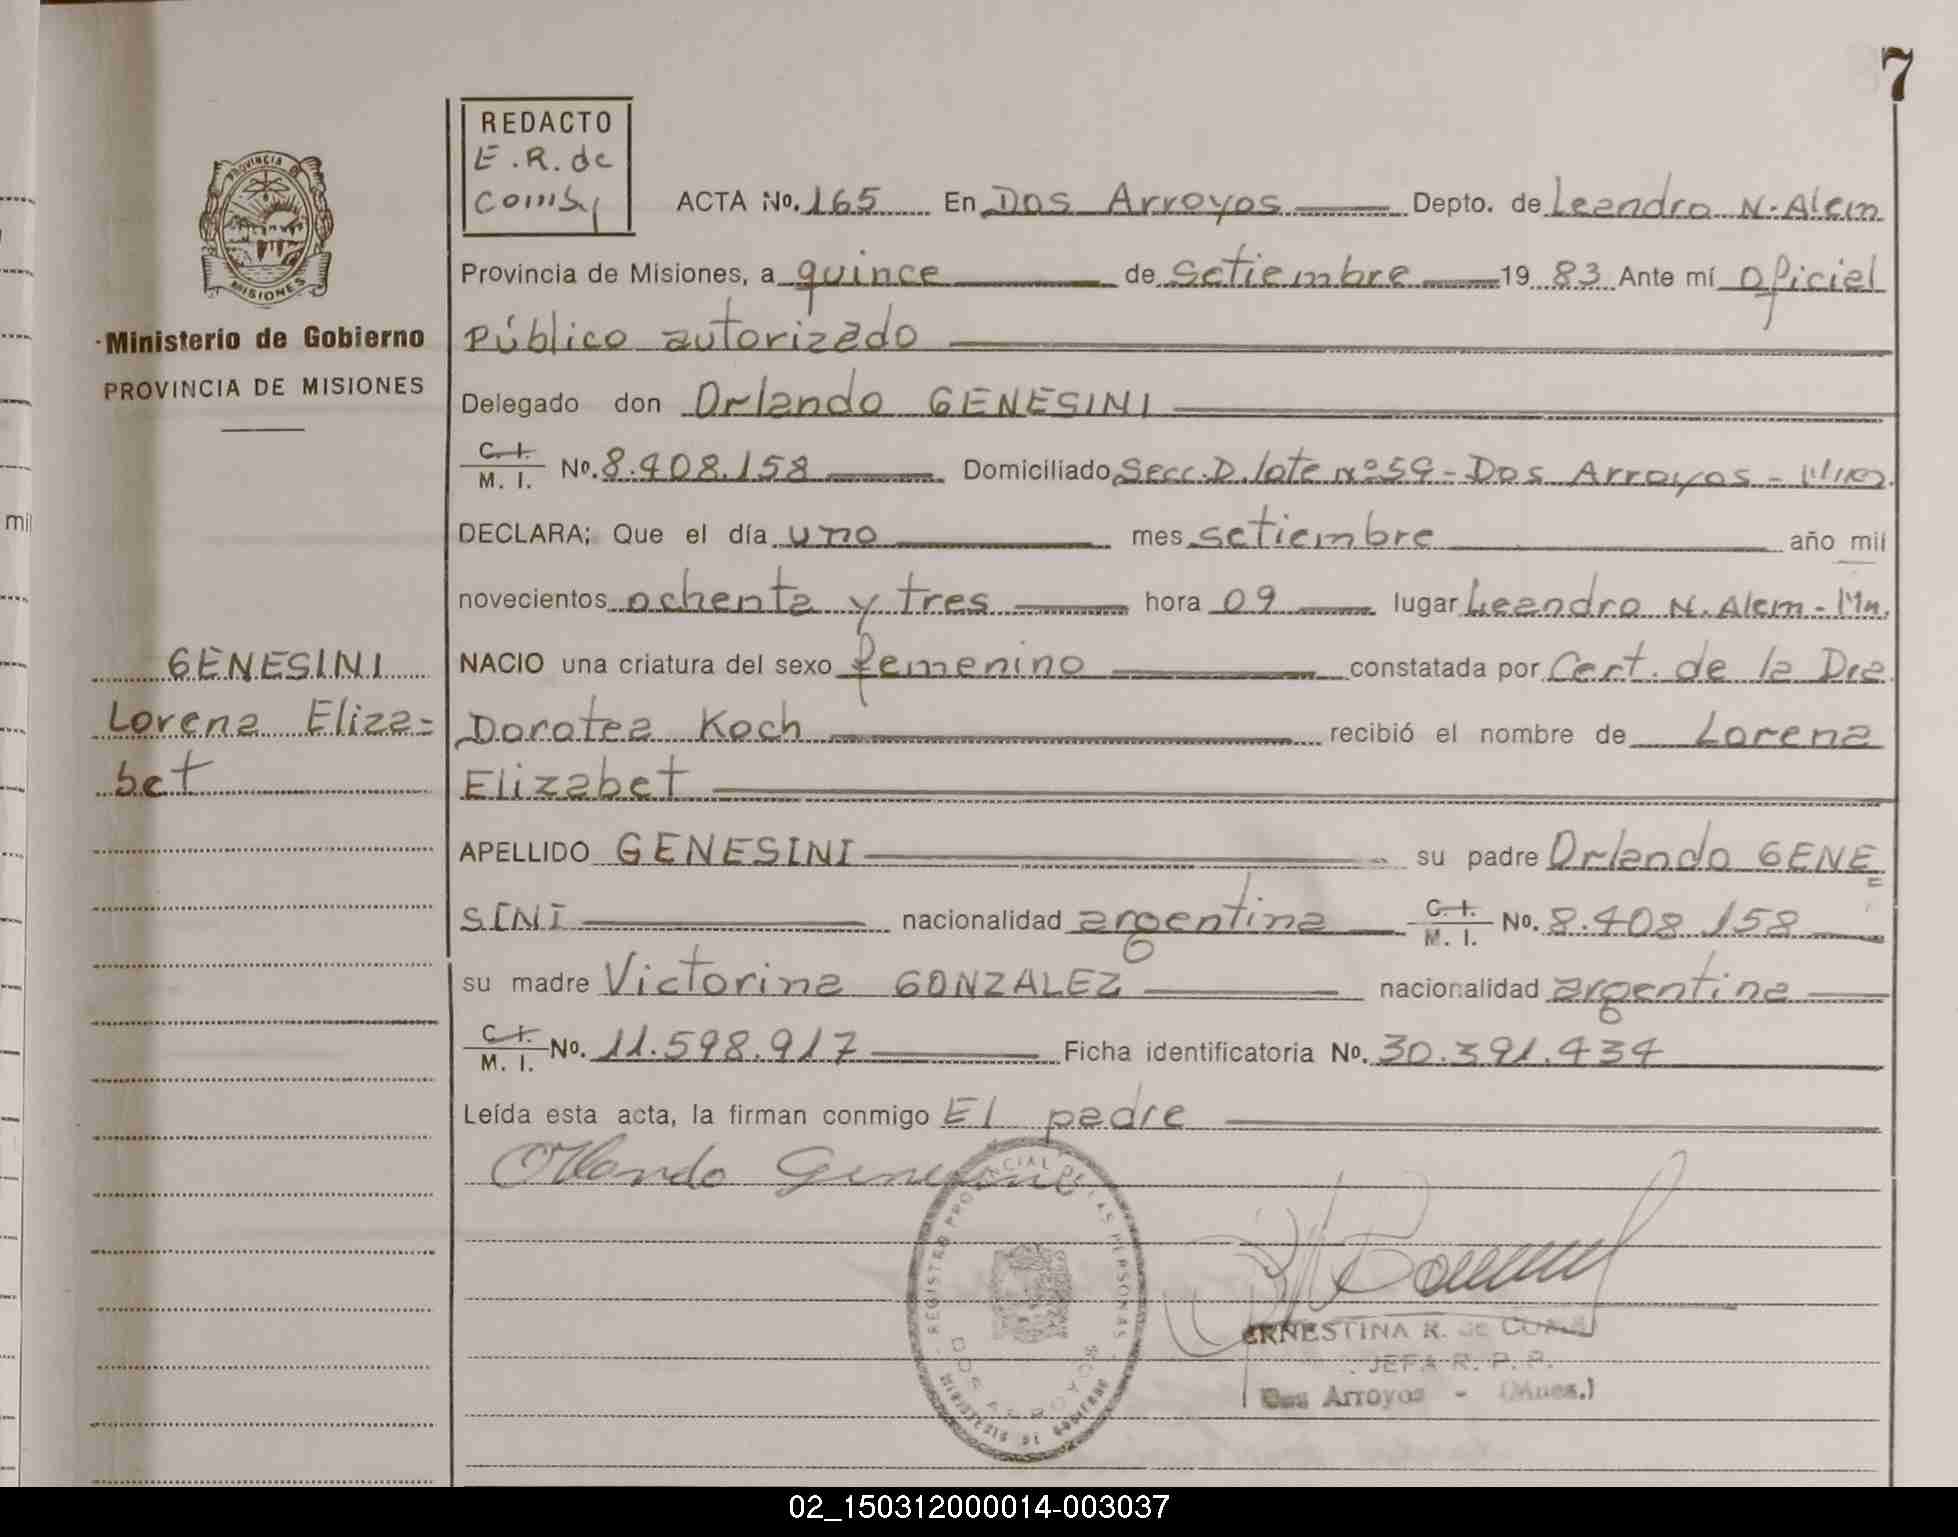 7
REDACTO
E.R. de
PROVINCIA DE
MISIONES
Ministerio de Gobierno
PROVINCIA DE MISIONES
ACTA No. 165 En Dos Arroyos Depto. de Leandro N. Alem
Provincia de Misiones, a quince de Setiembre 19 83 Ante mí oficial
Público autorizado
Delegado don Orlando GENESINI
C. I.
M. I. No. 8.408.158 Domiciliado Secc. D. lote nº 59 - Dos Arroyos -
DECLARA; Que el día uno mes setiembre año mil
novecientos ochenta y tres hora 09 lugar Leandro N. Alem - Mn.
NACIO una criatura del sexo femenino constatada por Cert. de la Dra
Dorotea Koch recibió el nombre de Lorena
Elizabet
APELLIDO GENESINI su padre Orlando GENE=
SINI nacionalidad argentina C. I.
M. I. No. 8.408.158
su madre Victorina GONZALEZ nacionalidad argentina
C. I.
M. I. No. 11.598.917 Ficha identificatoria No. 30.391.434
Leída esta acta, la firman conmigo El padre
Orlando Genesini
GENESINI
Lorena Eliza=
bet
REGISTRO PROVINCIAL DE LAS PERSONAS
DOS ARROYOS
MINISTERIO DE GOBIERNO
ERNESTINA R. de
JEFA R. P. P.
Dos Arroyos - (Mnes.)
mil
02_150312000014-003037